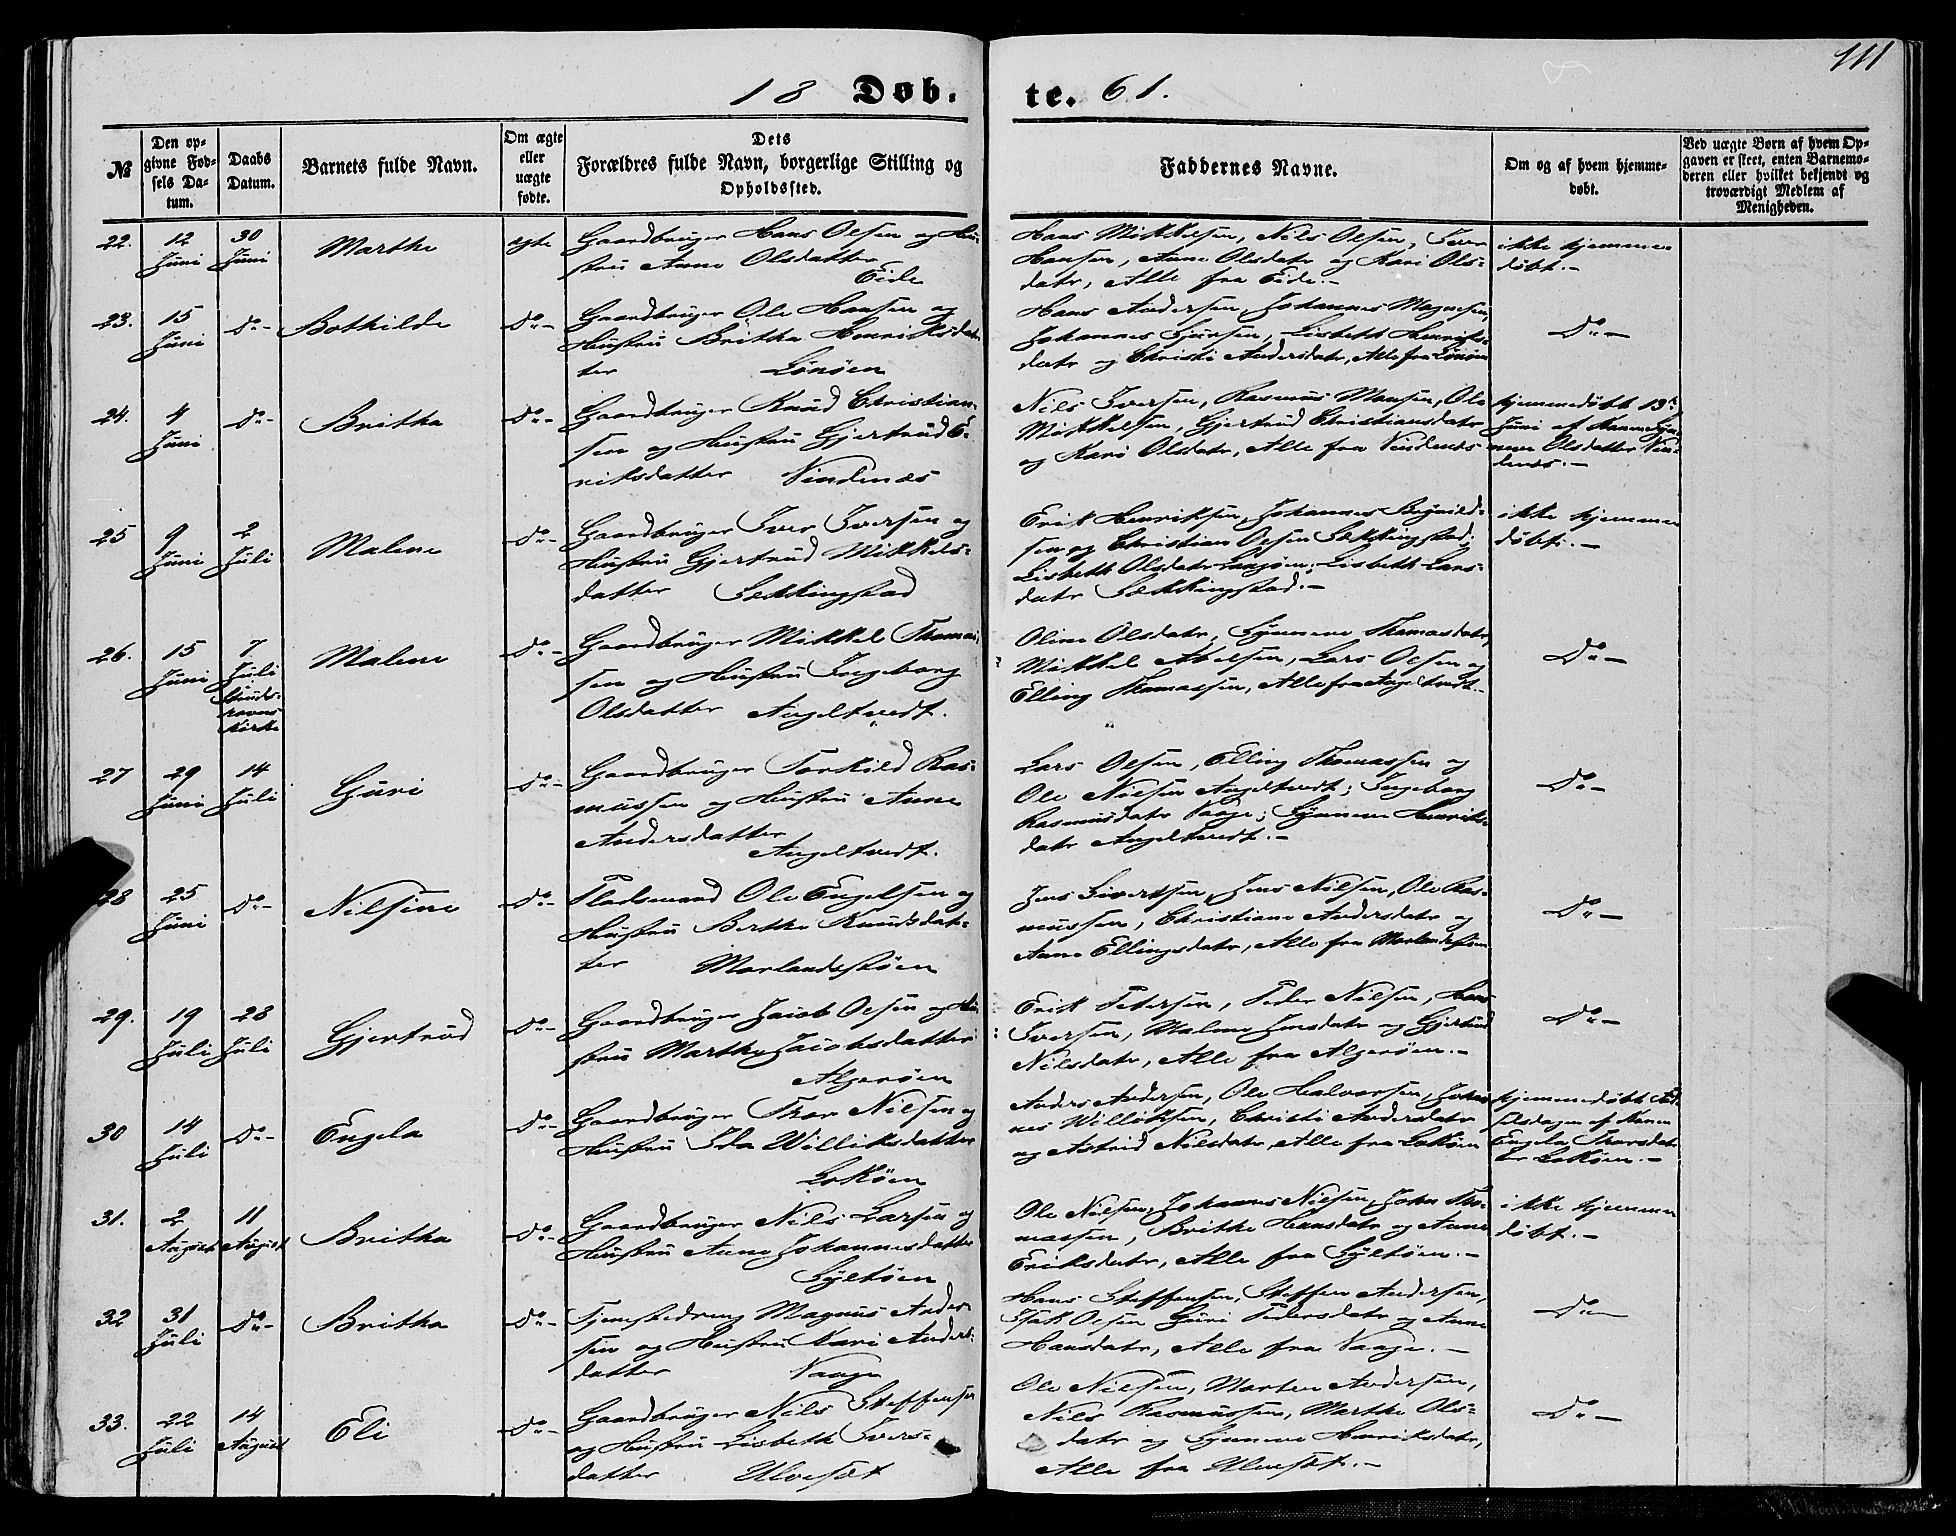 111
18 Døb- te. 61.
№
Den opgivne Fødsels Datum.
Daabs Datum.
Barnets fulde Navn.
Om ægte eller uægte fødte.
Dets Forældres fulde Navn, borgerlige Stilling og Opholdssted.
Faddernes Navne.
Om og af hvem hjemmedøbt.
Ved uægte Børn af hvem Opgaven er skeet, enten Barnemoderen eller hvilket bekjendt og troværdigt Medlem af Menigheden.
22. 12 Juni 30 Juni Marthe egte
Gaardbruger Hans Olsen og Hu-
stru Anne Olsdatter
Eide
Hans Mikkelsen, Nils Olsen, Iver
Hansen, Anne Olsdatr og Kari Ols-
datr, Alle fra Eide.-
ikke hjemme
døbt.-
23. 15 Juni Do- Bothilde Do-
Gaardbruger Ole Hansen og
Hustru Britha Henriksdat-
ter Lønøen
Hans Andersen, Johannes Magnesen,
Johannes Sjursen, Lisbeth Henriks-
datr og Christi Andersdatr, Alle fra Lønøen
Do-
24. 4 Juni Do- Britha Do-
Gaardbruger Knud Christian-
sen og Hustru Gjertrud E-
riksdatter Vindenæs
Nils Iversen, Rasmus Monsen, Ole
Mikkelsen, Gjertrud Christiansdatr
og Kari Olsdatr, Alle fra Vindenæs
hjemmedøbt 13de
Juni af Konen Syn-
neve Olsdatter Vin-
denæs.-
25 9 Juni 2 Juli Malene Do-
Gaardbruger Iver Iversen og
Hustru Gjertrud Mikkels-
datter Sekkingstad
Erik Henriksen, Johannes
sen og Christian Olsen Sekkingstad;
Lisbeth Olsdatr Langøen; Lisbeth Lars-
datr Sekkingstad.-
ikke hjemme
døbt.-
26. 15 Juni 7 Juli Sunds- havns Kirke Malene Do-
Gaardbruger Mikkel Thomas-
sen og Hustru Ingeborg
Olsdatter Angeltvedt.
Oline Olsdatr, Synneve Thomasdatr,
Mikkel Abelsen, Lars Olsen og
Elling Thomassen, Alle fra Angeltvedt.-
Do-
27 29 Juni 14 Juli Guri Do-
Gaardbruger Torkild Ras-
mussen og Hustru Anne
Andersdatter
Angeltvedt.
Lars Olsen, Elling Thomassen og
Ole Nilsen Angeltvedt; Ingeborg
Rasmusdatr Vaage; Synneve Henriks-
datr Angeltvedt.-
Do-
28 25 Juni Do- Nilsine Do-
Pladsmand Ole Engelsen og
Hustru Berthe Knudsdat-
ter Morlandstøen
Jens Sivertsen, Jens Nilsen, Ole Ras-
mussen, Christiane Andersdatr og
Anne Ellingsdatr, Alle fra Morlandstøen
Do-
29. 19 Juli 28 Juli Gjertrud Do-
Gaardbruger Jacob Olsen og Hu-
stru Marthe Jacobsdatter
Algerøen
Erik Petersen, Peder Nilsen, Hans
Iversen, Malene Jonsdatr og Gjertrud
Nilsdatr, Alle fra Algerøen.-
Do-
30 14 Juli Do- Engela Do-
Gaardbruger Thor Nilsen og
Hustru Ida Williksdatter
Lokøen
Anders Andersen, Ole Halvorsen, Johan-
nes Williksen, Christi Andersdatr
og Astrid Nilsdatr, Alle fra Lokøen
hjemmedøbt Fød-
selsdagen af Konen
Engela Thorsdat-
ter Lokøen.-
31. 2 August 11 August Britha Do-
Gaardbruger Nils Larsen og
Hustru Anne Johannesdatter
Syltøen
Ole Nilsen, Johannes Nilsen, John Tho-
massen, Brithe Hansdatr og Anne
Eriksdatr, Alle fra Syltøen.-
ikke hjemme
døbt.-
32 31 Juli Do- Britha Do-
Tjenestedreng Magnus Ander-
sen og Hustru Kari Anders-
datter Vaage
Hans Steffensen, Steffen Andersen,
Isak Olsen, Guri Pedersdatr og Anne
Hansdatr, Alle fra Vaage.-
Do-
33. 22 Juli 14 August Eli Do-
Gaardbruger Nils Steffensen
og Hustru Lisbeth Ivers-
datter Ulvesæt
Ole Nilsen, Morten Andersen,
Nils Rasmussen, Marthe Ols-
datr og Synneve Henriksdatr,
Alle fra Ulvesæt.-
Do-